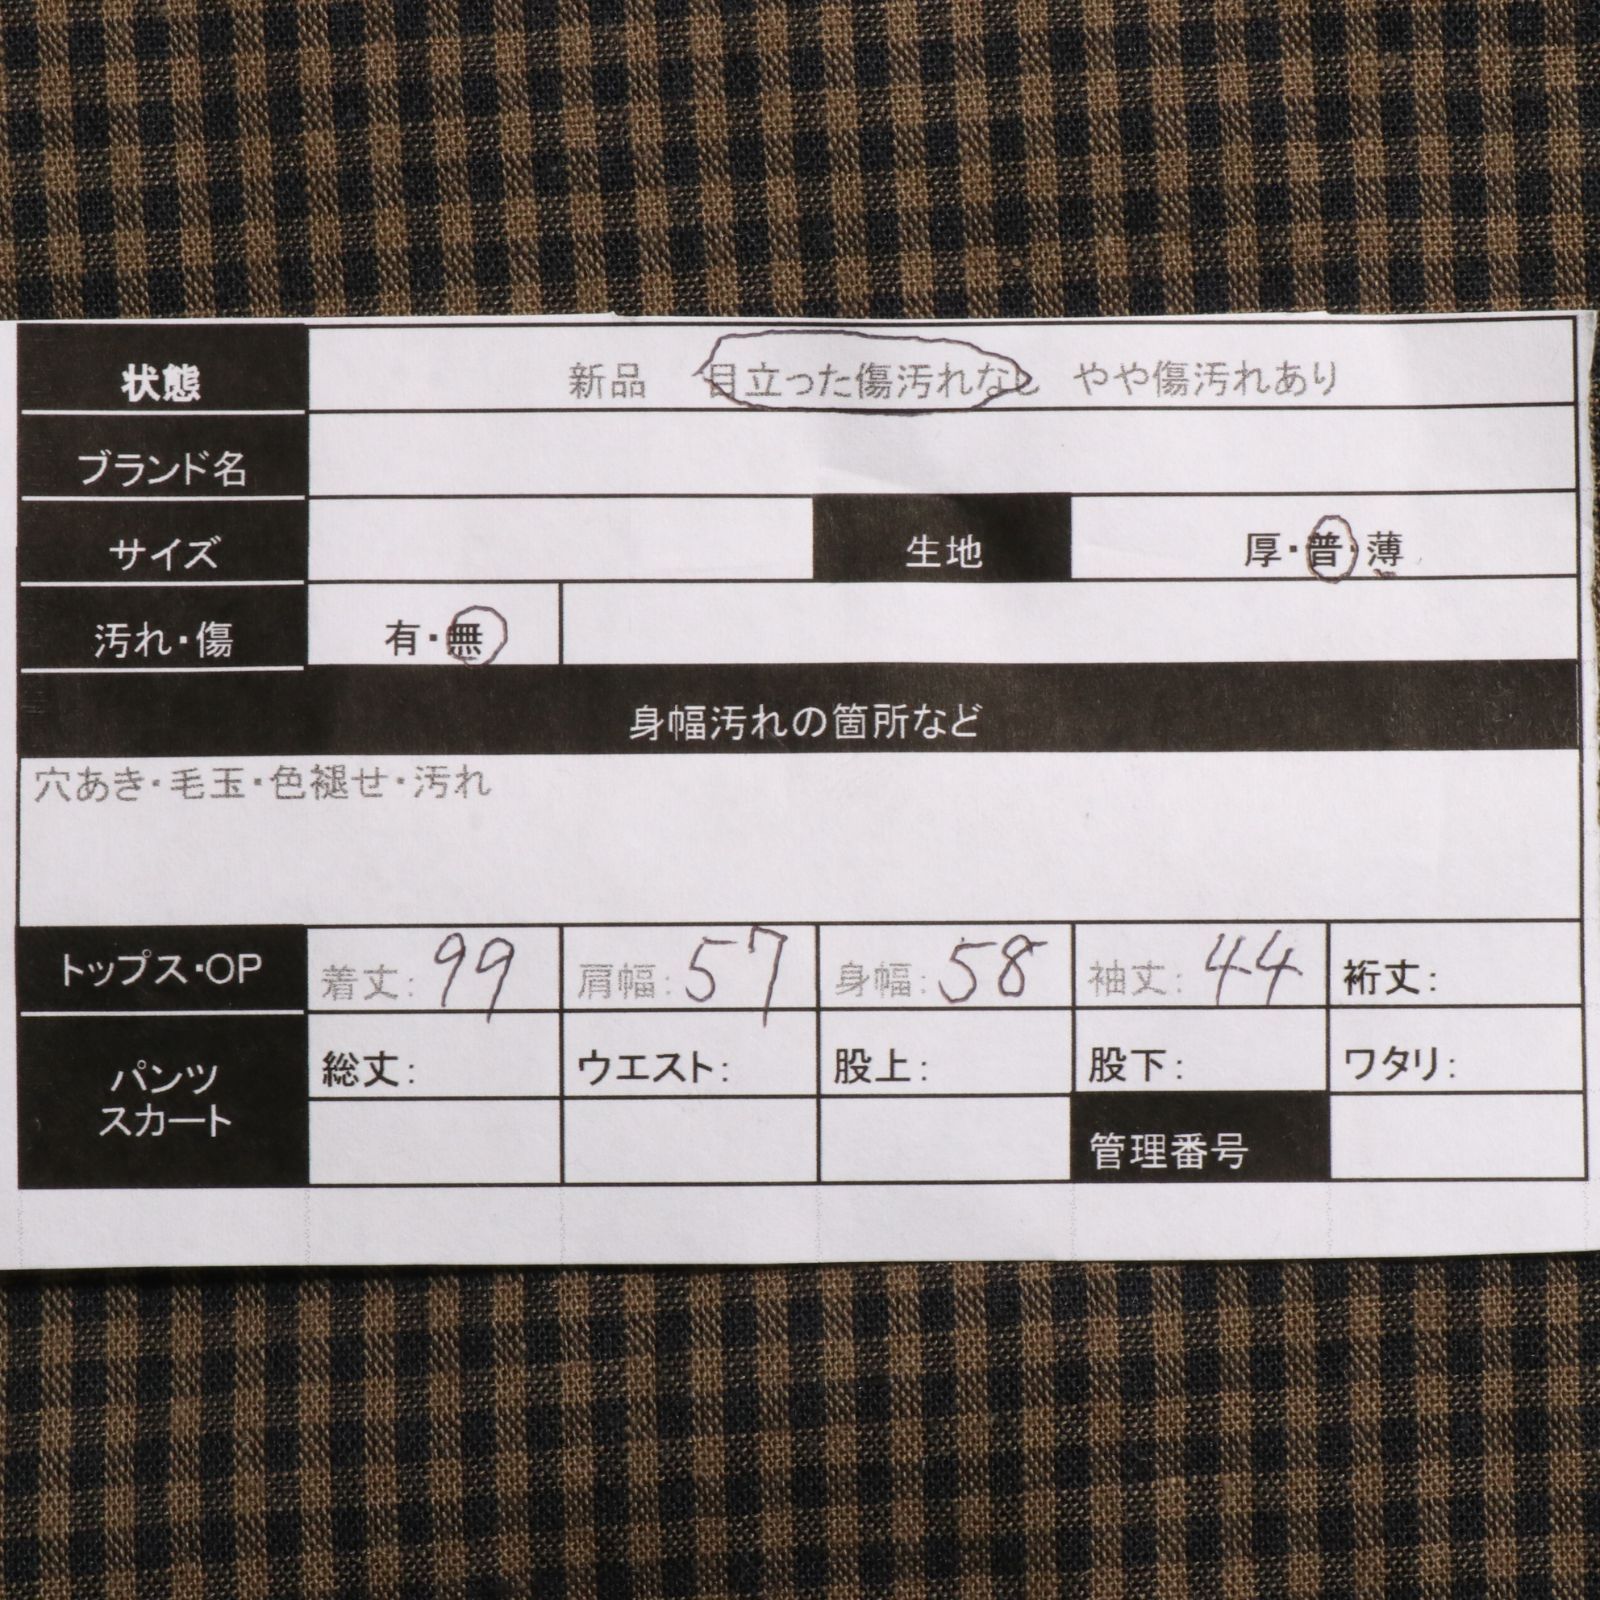 状態 新品 目立った傷汚れなし やや傷汚れあり
ブランド名
サイズ 生地 厚・普・薄
汚れ・傷 有・無
身幅汚れの箇所など
穴あき・毛玉・色褪せ・汚れ
トップス・OP 着丈: 99 肩幅: 57 身幅: 58 袖丈: 44 裄丈:
パンツ 総丈: ウエスト: 股上: 股下: ワタリ:
スカート 管理番号